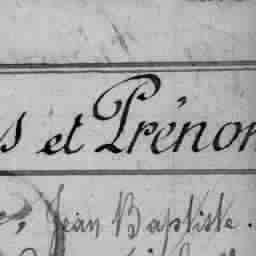 s et Prénom
Jean Baptiste.